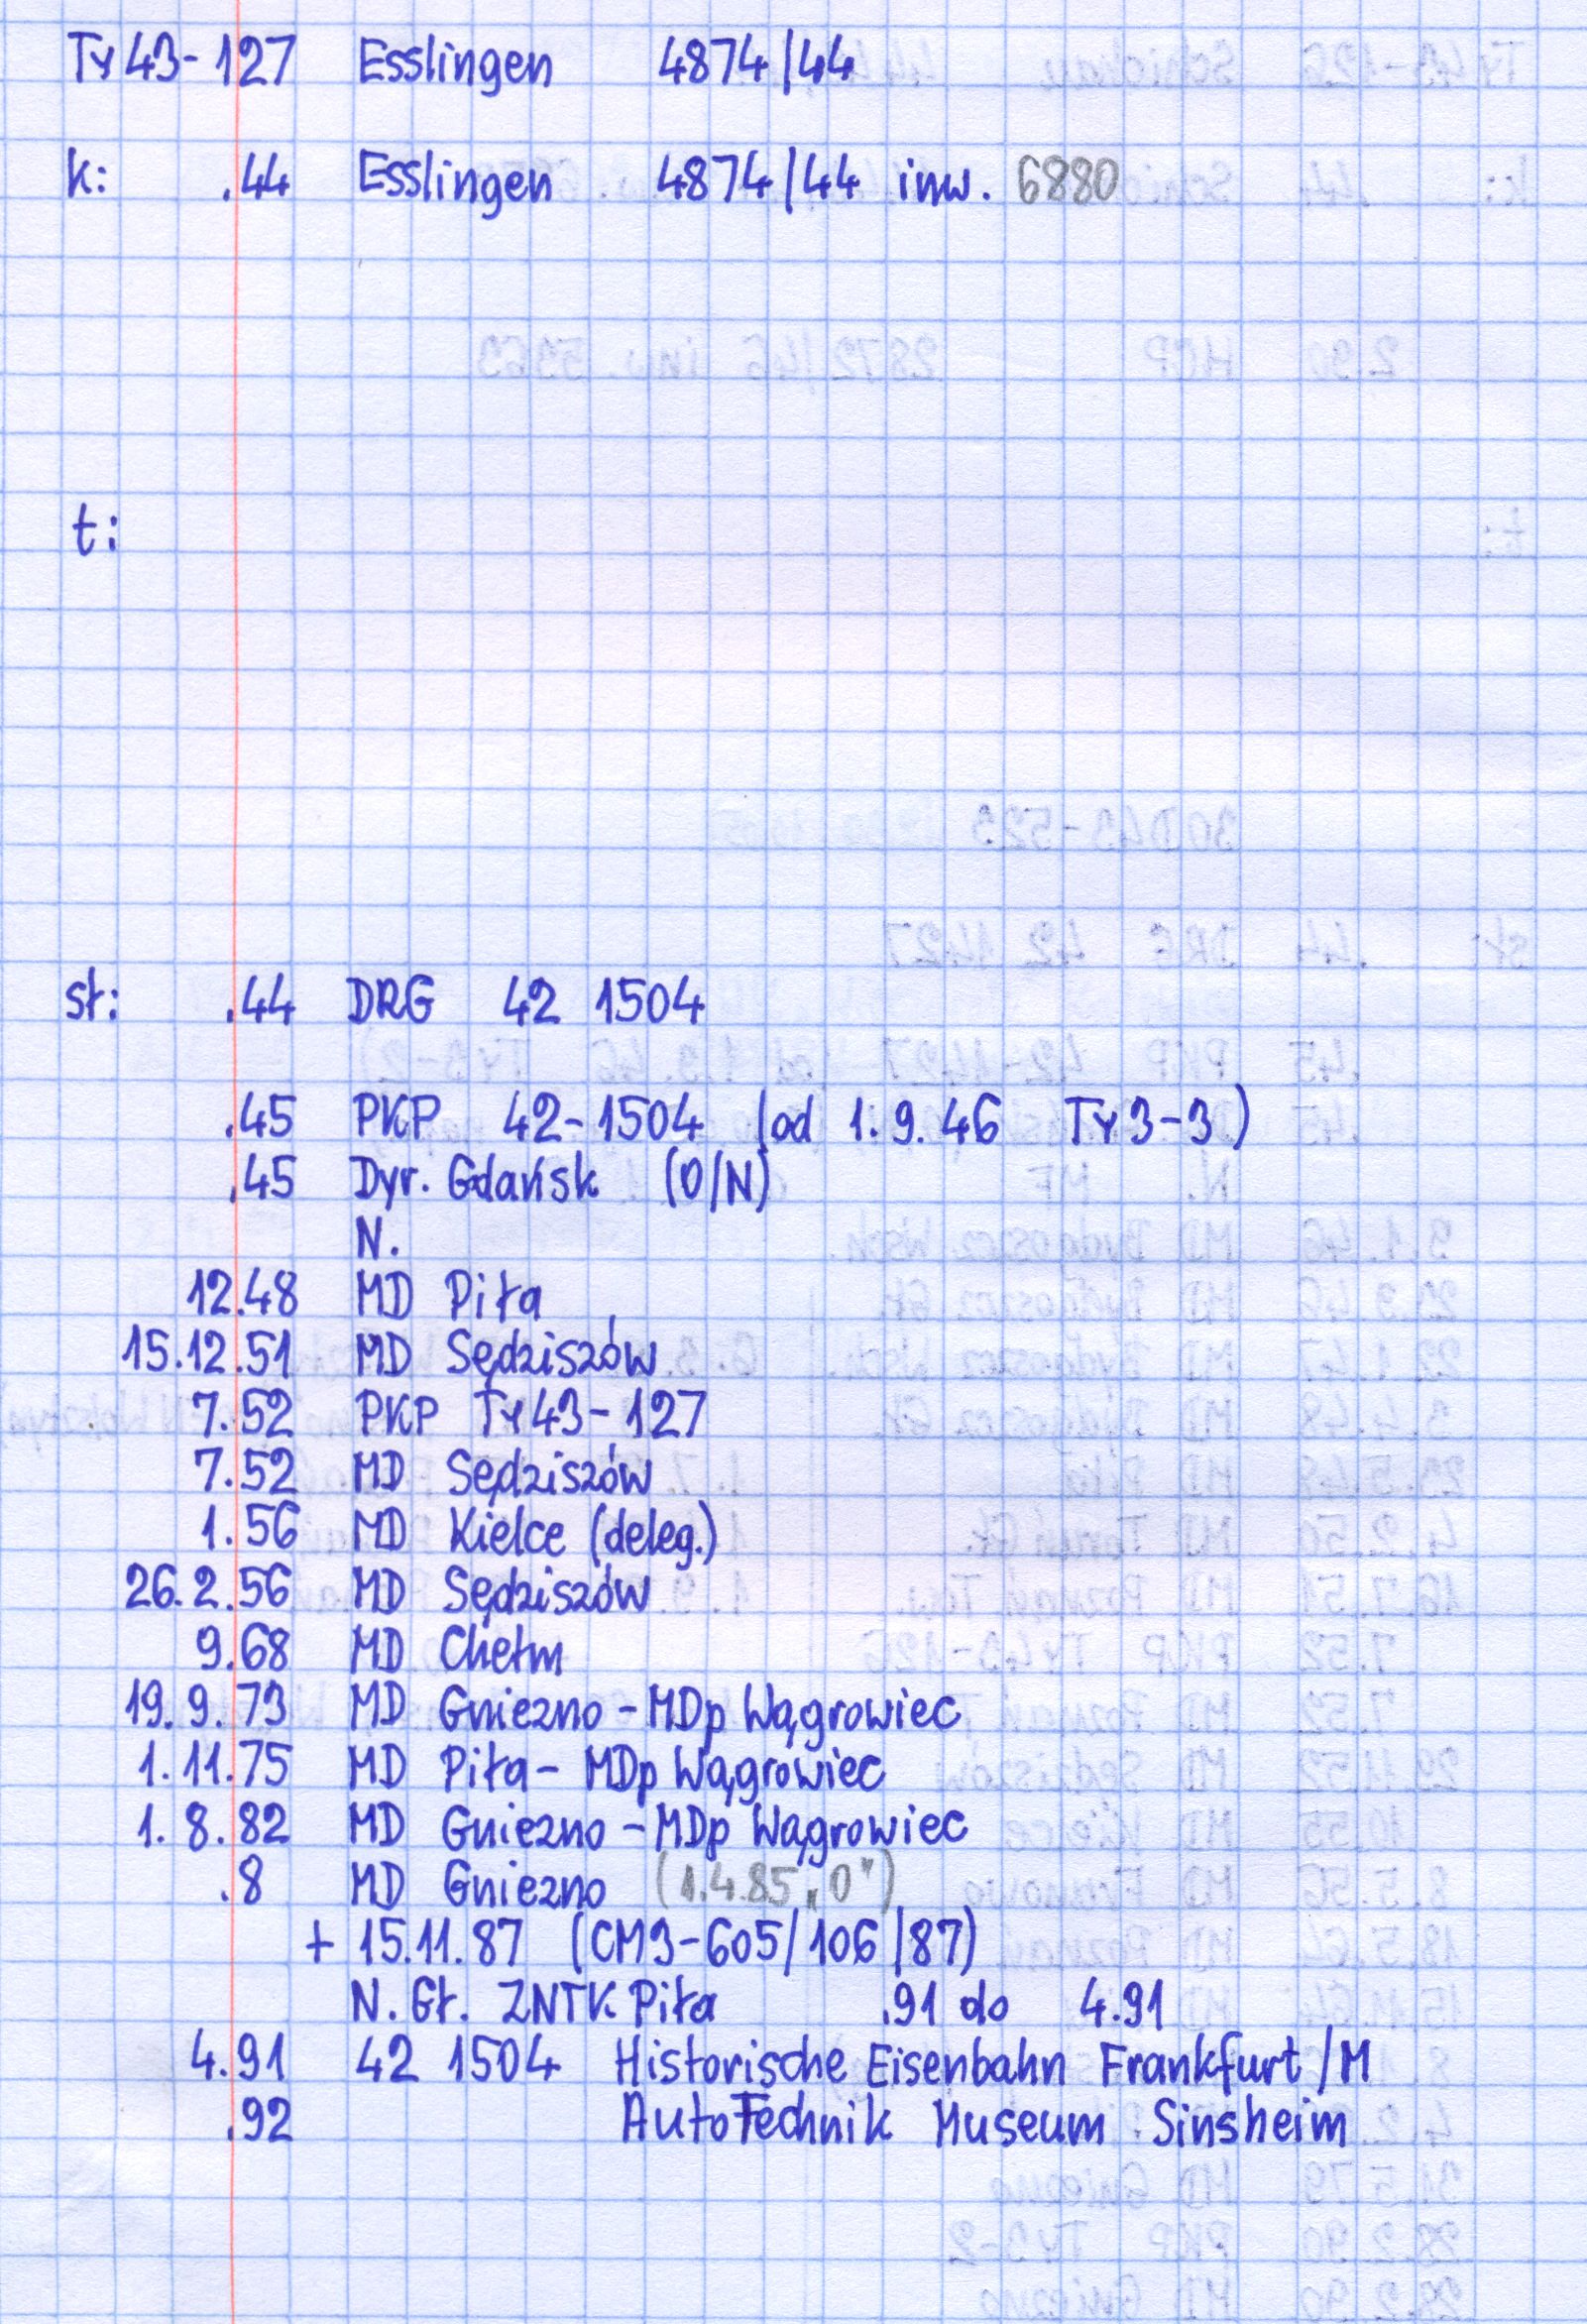 Ty43-127 Esslingen 4874/44
k: .44 Esslingen 4874/44 inw. 6880
t:
st: .44 DRG 42 1504
.45 PKP 42-1504 (od 1.9.46 Ty3-3)
.45 Dyr. Gdańsk (O/N)
N.
12.48 MD Piła
15.12.51 MD Sędziszów
7.52 PKP Ty43-127
7.52 MD Sędziszów
1.56 MD Kielce (deleg.)
26.2.56 MD Sędziszów
9.68 MD Chełm
19.9.73 MD Gniezno - MDp Wągrowiec
1.11.75 MD Piła - MDp Wągrowiec
1.8.82 MD Gniezno - MDp Wągrowiec
.8 MD Gniezno (1.4.85 „0")
+ 15.11.87 (CM3-605/106/87)
N. Gł. ZNTK Piła .91 do 4.91
4.91 42 1504 Historische Eisenbahn Frankfurt/M
.92 AutoTechnik Museum Sinsheim